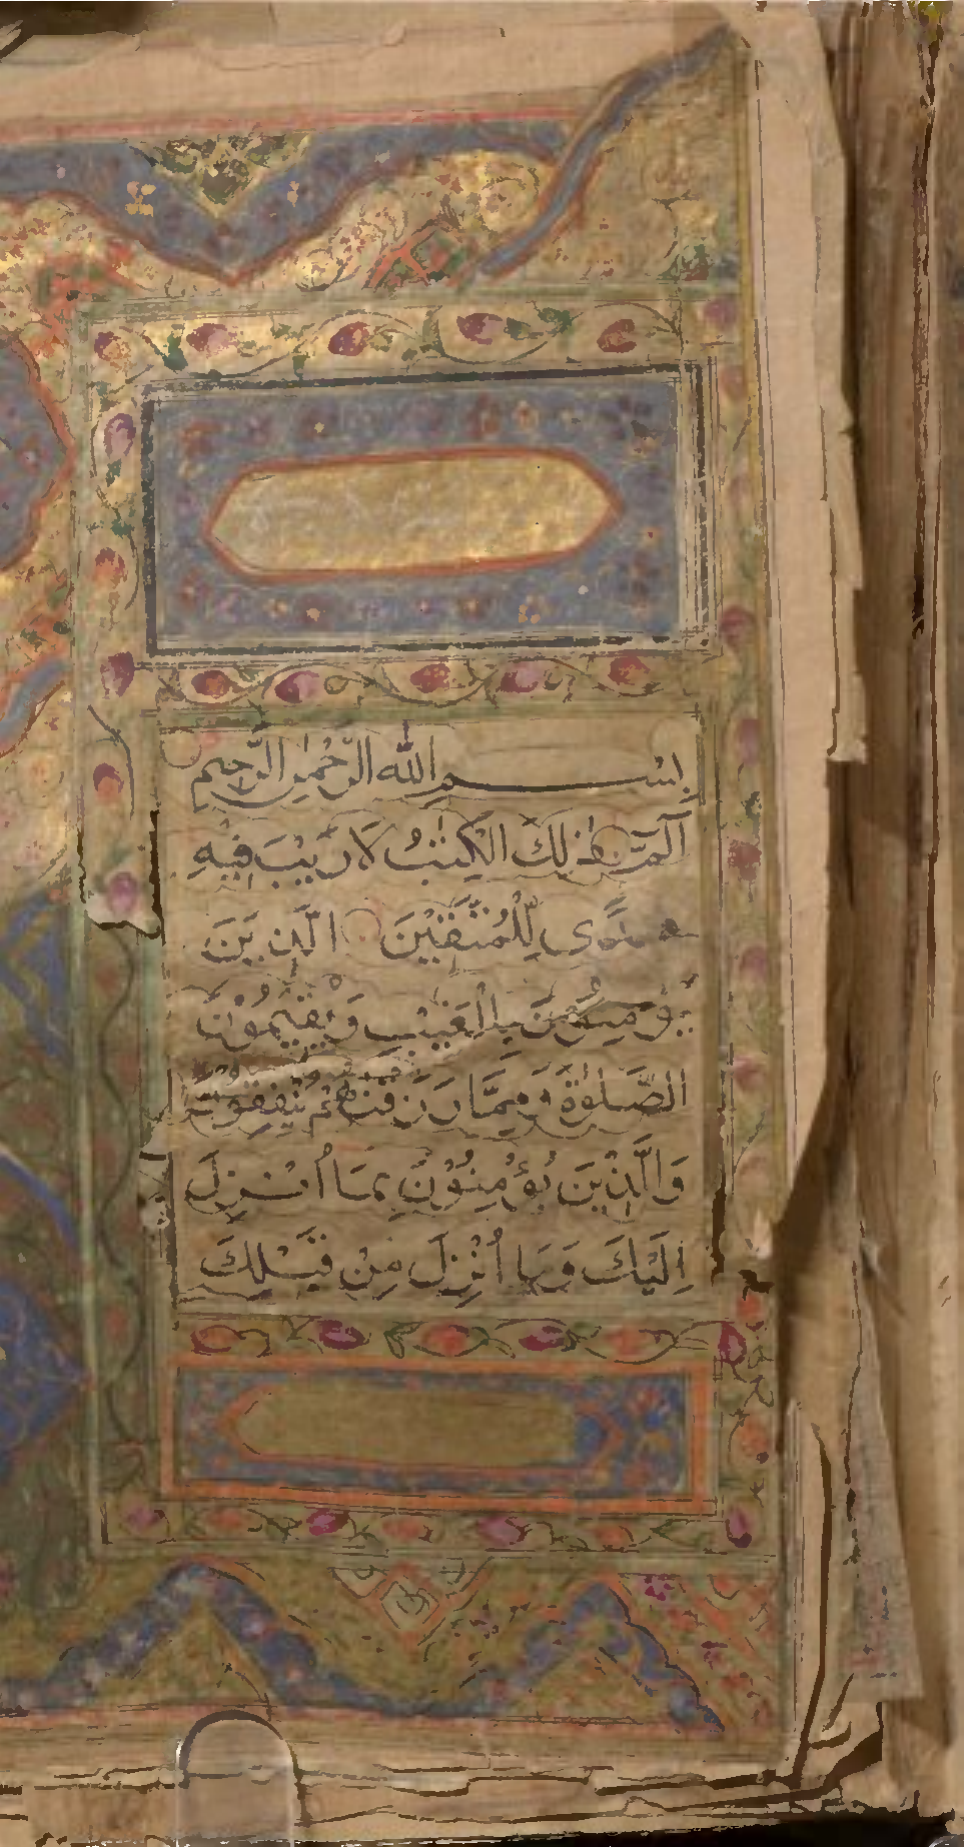 بِسْمِ اللّٰهِ الرَّحْمٰنِ الرَّحِيمِ
الٓمّٓ ۚ ذٰلِكَ الْكِتٰبُ لَا رَيْبَ فِيْهِ
هُدًى لِّلْمُتَّقِيْنَ الَّذِيْنَ
يُؤْمِنُوْنَ بِالْغَيْبِ وَيُقِيْمُوْنَ
الصَّلٰوةَ وَمِمَّا رَزَقْنٰهُمْ يُنْفِقُوْنَ
وَالَّذِيْنَ يُؤْمِنُوْنَ بِمَا اُنْزِلَ
اِلَيْكَ وَمَا اُنْزِلَ مِنْ قَبْلِكَ